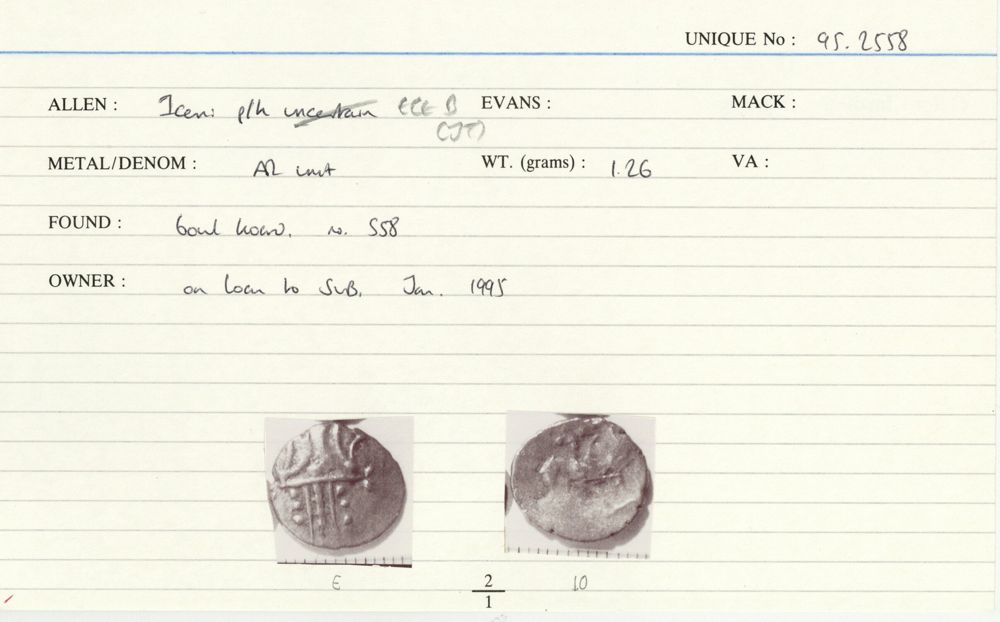 UNIQUE No : 95.2558
ALLEN : Iceni p/h uncertain ECE B EVANS : MACK :
(JT)
METAL/DENOM : AR unit WT. (grams) : 1.26 VA :
FOUND : bowl hoard. no. 558
OWNER : on loan to SUB, Jan. 1995
E 2 10
1